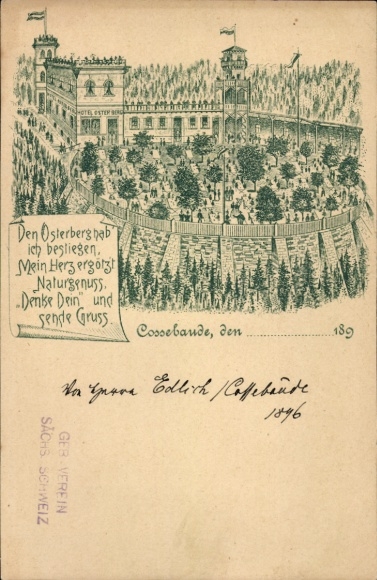 HOTEL OSTERBERG
Den Osterberg hab
ich bestiegen,
Mein Herz ergötzt
Naturgenuss,
"Denke Dein" und
sende Gruss.
Cossebaude, den 189
Von Herrn Edlich / Cossebaude
1896
GEB. VEREIN
SÄCHS. SCHWEIZ